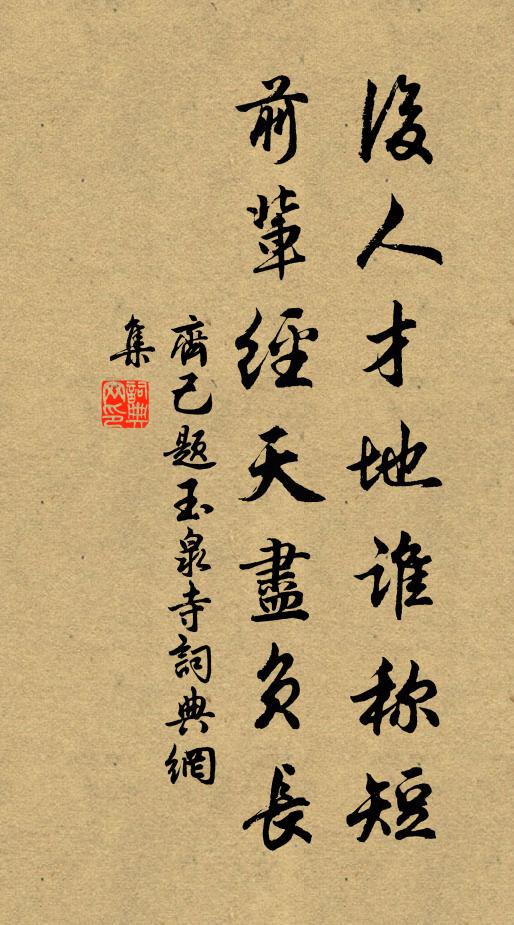 後人才地谁称短
前輩經天盡負長
齊己题玉泉寺詞典網
集
詞典
网印